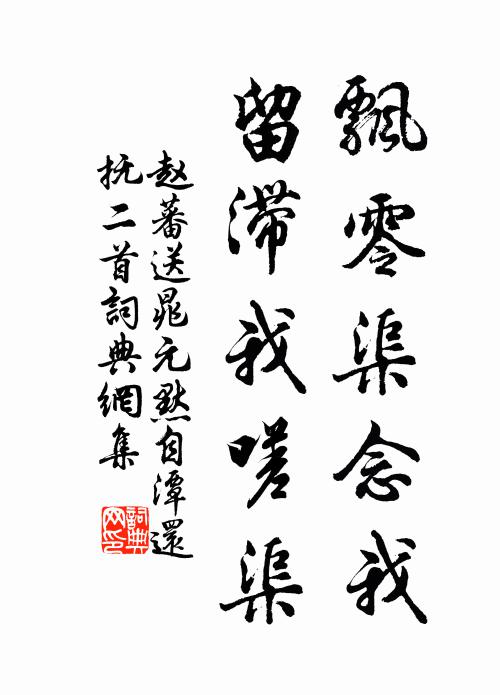 飄零渠念我
留滞我嗟渠
赵蕃送晁元默自潭還
抚二首詞典網集
詞典
网印